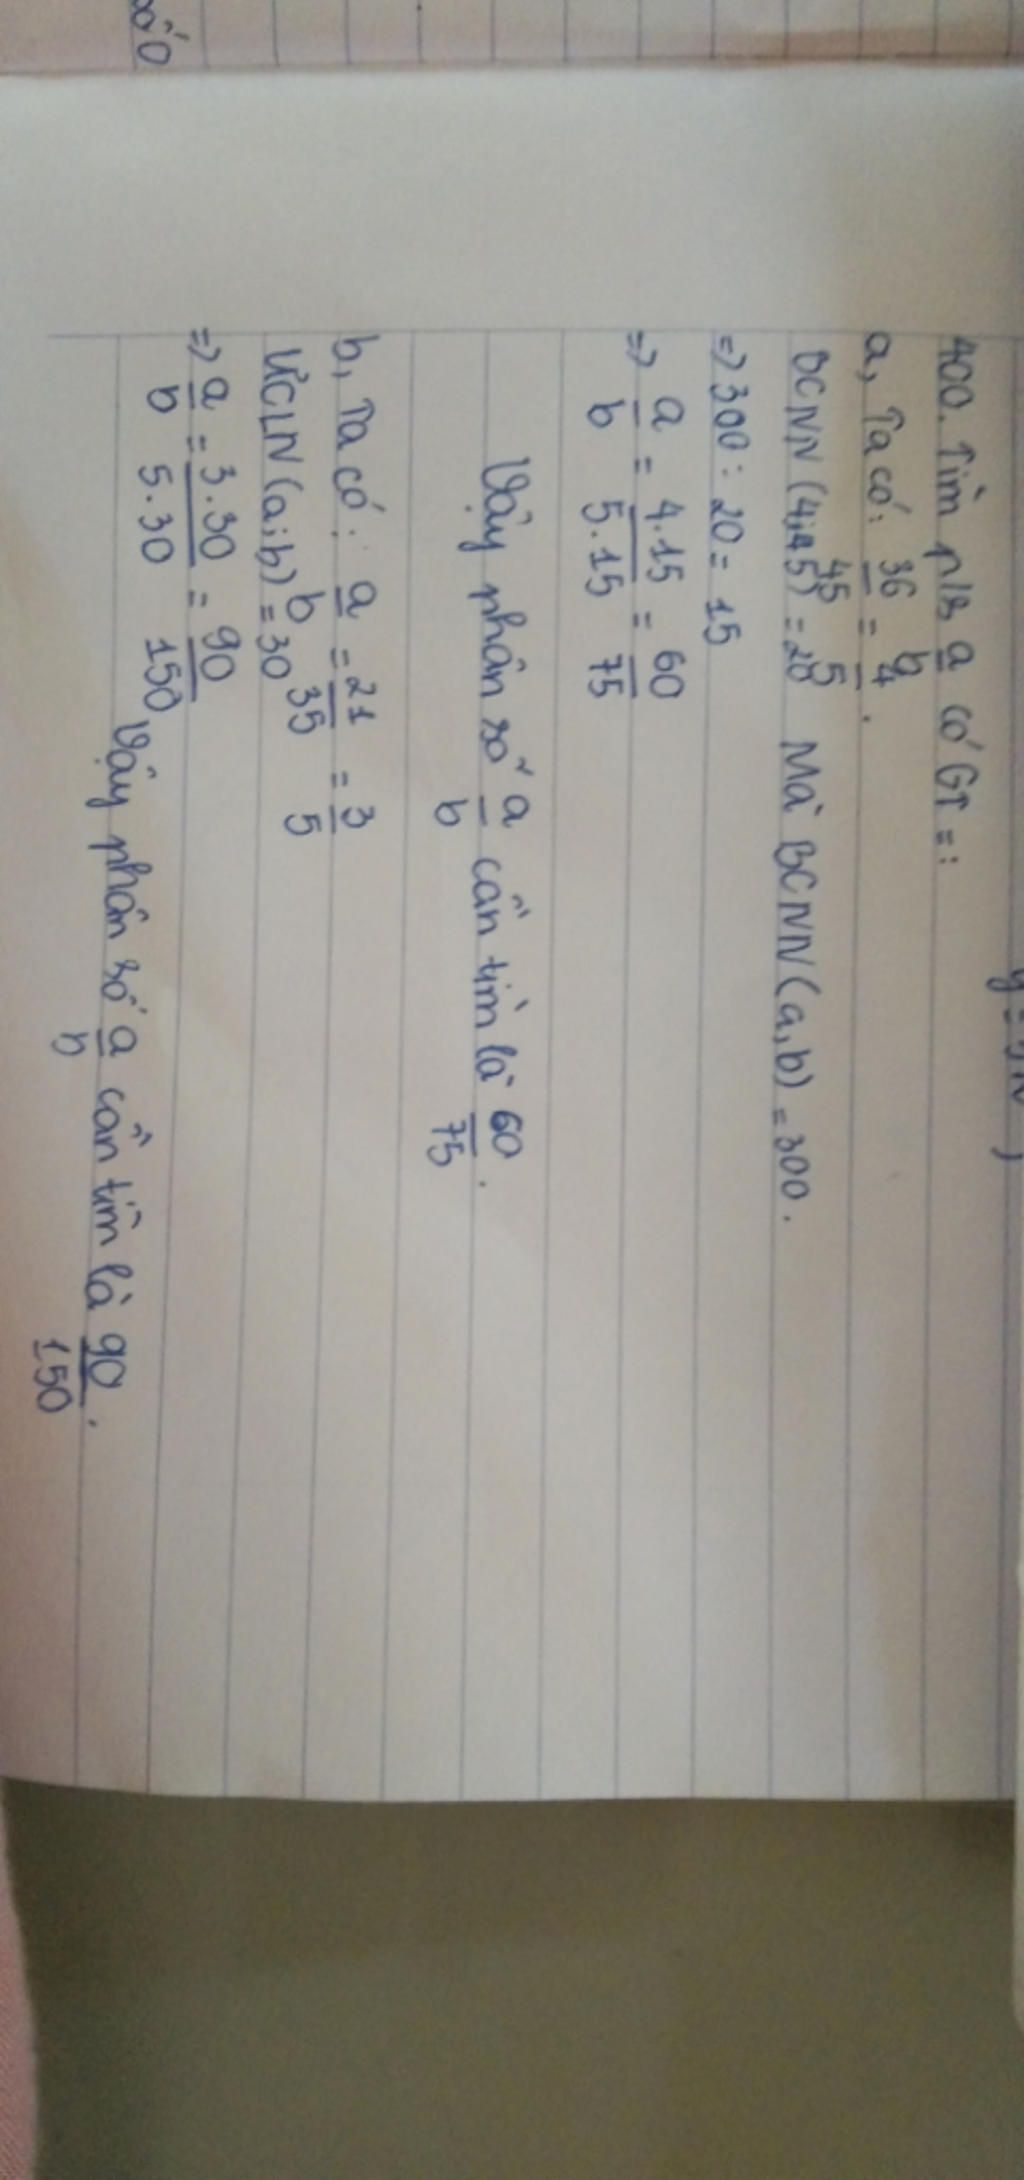 400. Tìm p/s a/b có GT = :
a, Ta có: 36/45 = 4/5.
BCNN (4;5) = 20 Mà BCNN (a,b) = 300.
=> 300 : 20 = 15
=> a/b = 4.15/5.15 = 60/75
Vậy phân số a/b cần tìm là 60/75.
b, Ta có: a/b = 21/35 = 3/5
ƯCLN (a;b) = 30
=> a/b = 3.30/5.30 = 90/150
Vậy phân số a/b cần tìm là 90/150.